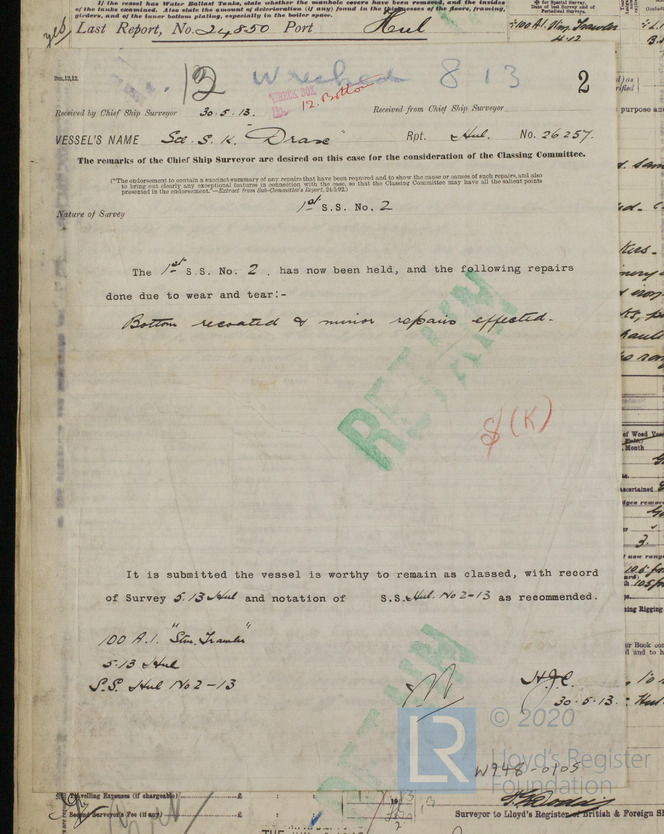 If the vessel has Water Ballast Tanks, state whether the manhole covers have been removed, and the insides
of the tanks examined. Also state the amount of deterioration (if any) found in the thicknesses of the floors, framing,
girders, and of the inner bottom plating, especially in the boiler space.
yes Last Report, No. 24850 Port Hul
*100 A.1. Stm. Trawler
4.12
12 Wrecked 8 13
2
12. Bottom
Received by Chief Ship Surveyor 30.5.13. Received from Chief Ship Surveyor
VESSEL'S NAME S.K. "Drax" Rpt. Hul. No. 26257.
The remarks of the Chief Ship Surveyor are desired on this case for the consideration of the Classing Committee.
(*The endorsement to contain a succinct summary of any repairs that have been required and to show the cause or causes of such repairs, and also
to bring out clearly any exceptional features in connection with the case, so that the Classing Committee may have all the salient points
presented in the endorsement."—Extract from Sub-Committee's Report, 24/3/02.)
Nature of Survey 1st S.S. No. 2
The 1st S.S. No. 2. has now been held, and the following repairs
done due to wear and tear:-
Bottom recoated & minor repairs effected.
RETAIN
(K)
It is submitted the vessel is worthy to remain as classed, with record
of Survey 5.13 Hul and notation of S.S. Hul. No 2-13 as recommended.
100 A.1. "Stm. Trawler"
5.13 Hul
S.S. Hul No 2-13
H.J.C.
30.5.13.
RETAIN
LR © 2020
Lloyd's Register
Foundation
W948-0103
Travelling Expenses (if chargeable) £
Second Surveyor's Fee (if any) £
Surveyor to Lloyd's Register of British & Foreign Sh